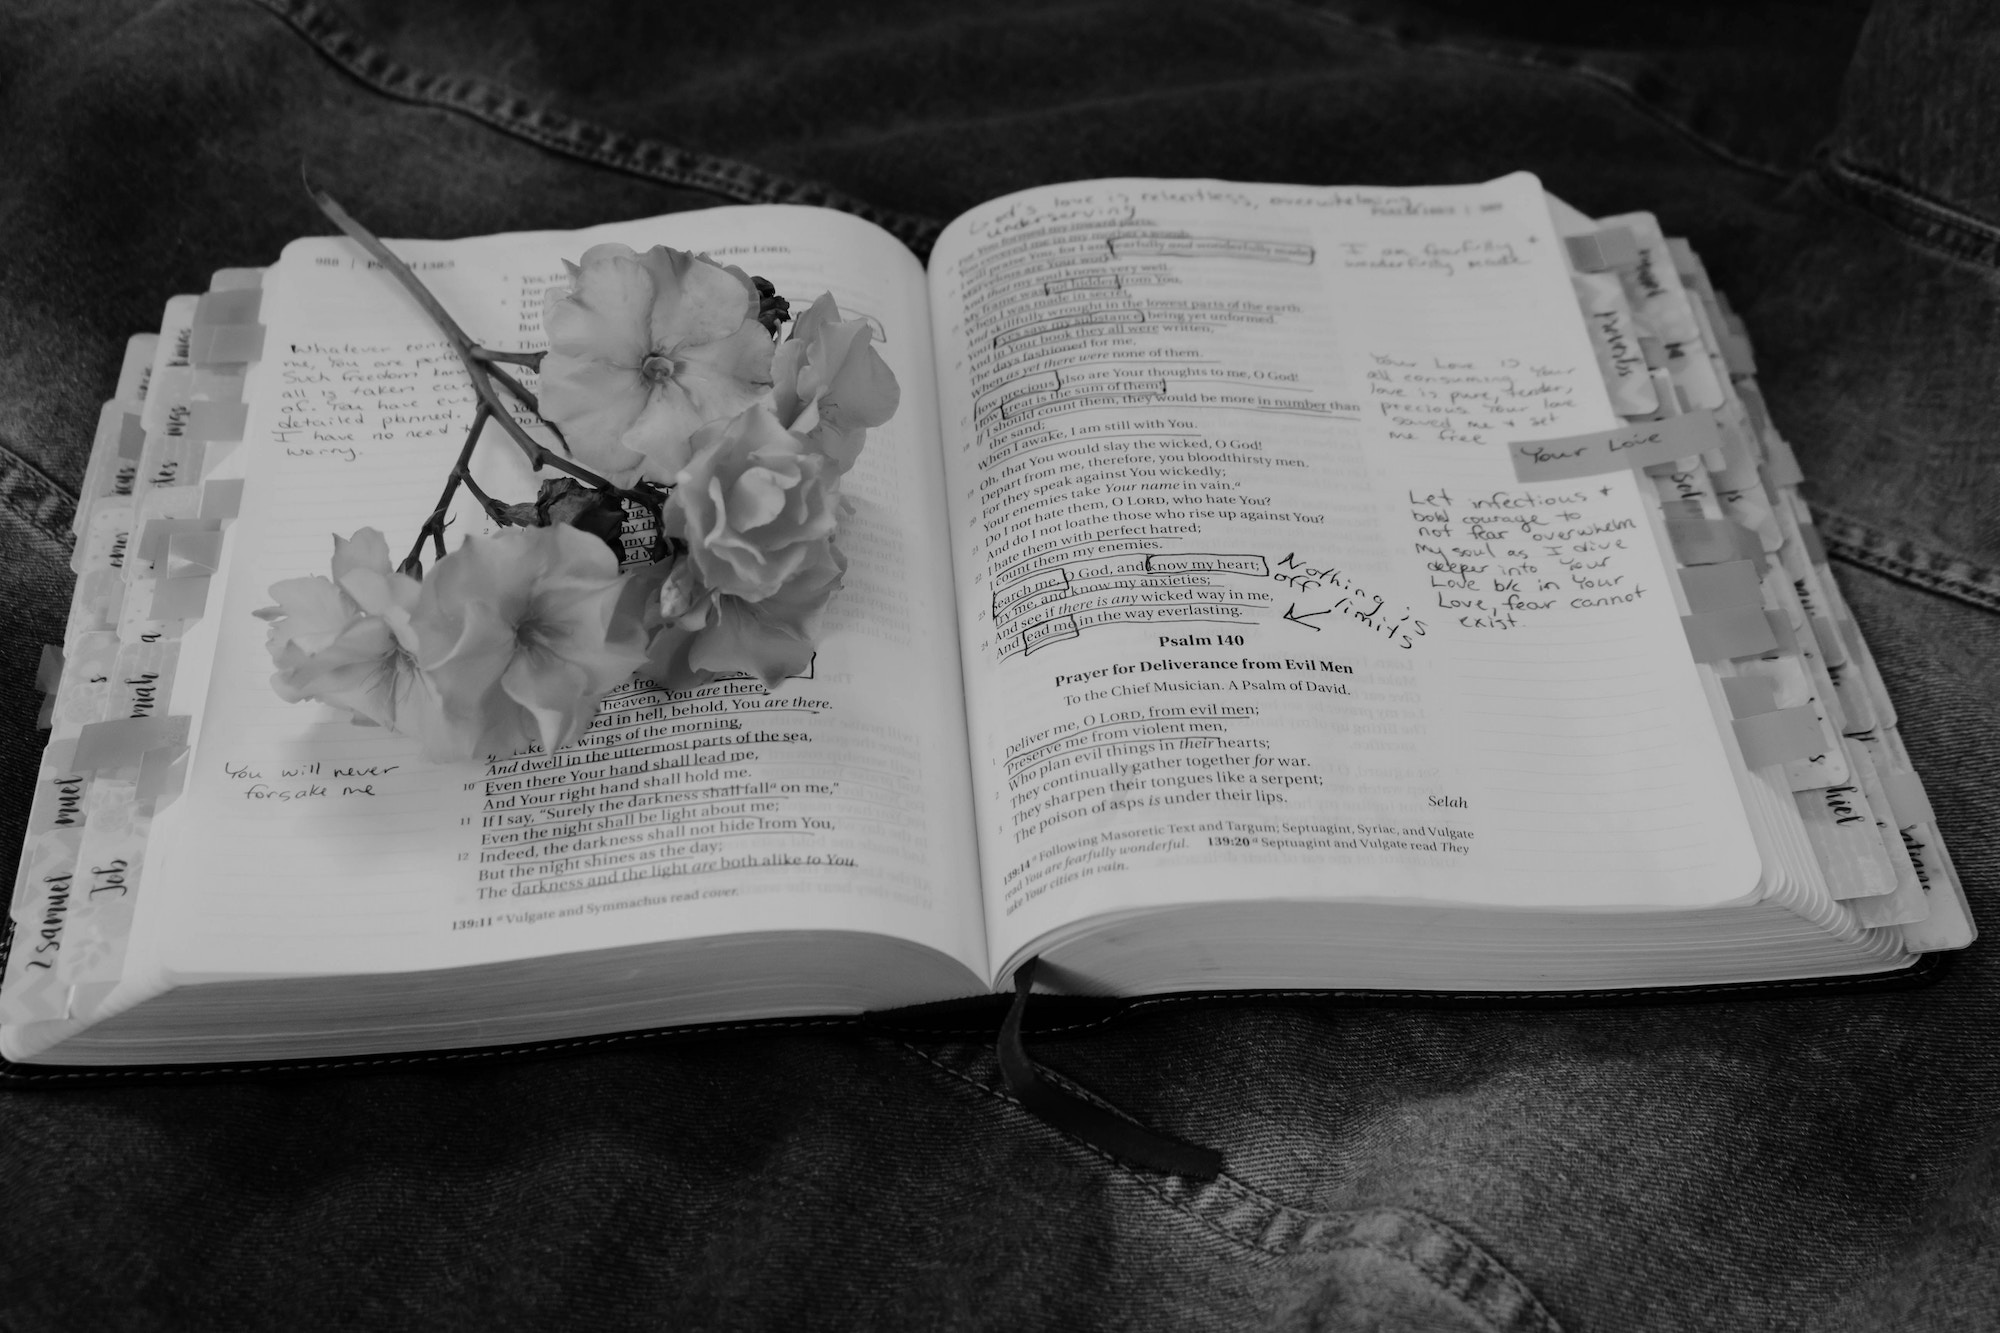 988 | PSALM 138:5
of the LORD,
Whatever
me, You are
Such freedom
all is taken care
of. You have
detailed planned.
I have no need
worry.
You will never
forsake me
heaven, You are there,
in hell, behold, You are there.
wings of the morning,
And dwell in the uttermost parts of the sea,
10 Even there Your hand shall lead me,
And Your right hand shall hold me.
11 If I say, “Surely the darkness shall fallᵃ on me,”
Even the night shall be light about me;
12 Indeed, the darkness shall not hide from You,
But the night shines as the day;
The darkness and the light are both alike to You.
139:11 ᵃ Vulgate and Symmachus read cover.
2 Samuel
muel
Job
God's love is relentless, overwhelming,
underserving
For You formed my inward parts;
You covered me in my mother's womb.
I will praise You, for I am fearfully and wonderfully made;
Marvelous are Your works,
And that my soul knows very well.
My frame was not hidden from You,
When I was made in secret,
And skillfully wrought in the lowest parts of the earth.
Your eyes saw my substance, being yet unformed.
And in Your book they all were written,
The days fashioned for me,
When as yet there were none of them.
How precious also are Your thoughts to me, O God!
How great is the sum of them!
If I should count them, they would be more in number than
the sand;
When I awake, I am still with You.
Oh, that You would slay the wicked, O God!
Depart from me, therefore, you bloodthirsty men.
For they speak against You wickedly;
Your enemies take Your name in vain.ᵃ
Do I not hate them, O LORD, who hate You?
And do I not loathe those who rise up against You?
I hate them with perfect hatred;
I count them my enemies.
Search me, O God, and know my heart;
Try me, and know my anxieties;
And see if there is any wicked way in me,
24 And lead me in the way everlasting.
Nothing is
off limits
I am fearfully +
wonderfully made
Your Love is
all consuming. Your
love is pure, tender,
precious. Your love
saved me + set
me free
Your Love
Let infectious +
bold courage to
not fear overwhelm
my soul as I dive
deeper into Your
Love b/c in Your
Love, fear cannot
exist.
Psalm 140
Prayer for Deliverance from Evil Men
To the Chief Musician. A Psalm of David.
Deliver me, O LORD, from evil men;
Preserve me from violent men,
Who plan evil things in their hearts;
They continually gather together for war.
They sharpen their tongues like a serpent;
The poison of asps is under their lips. Selah
139:14 ᵃ Following Masoretic Text and Targum; Septuagint, Syriac, and Vulgate
read You are fearfully wonderful. 139:20 ᵃ Septuagint and Vulgate read They
take Your cities in vain.
Proverbs